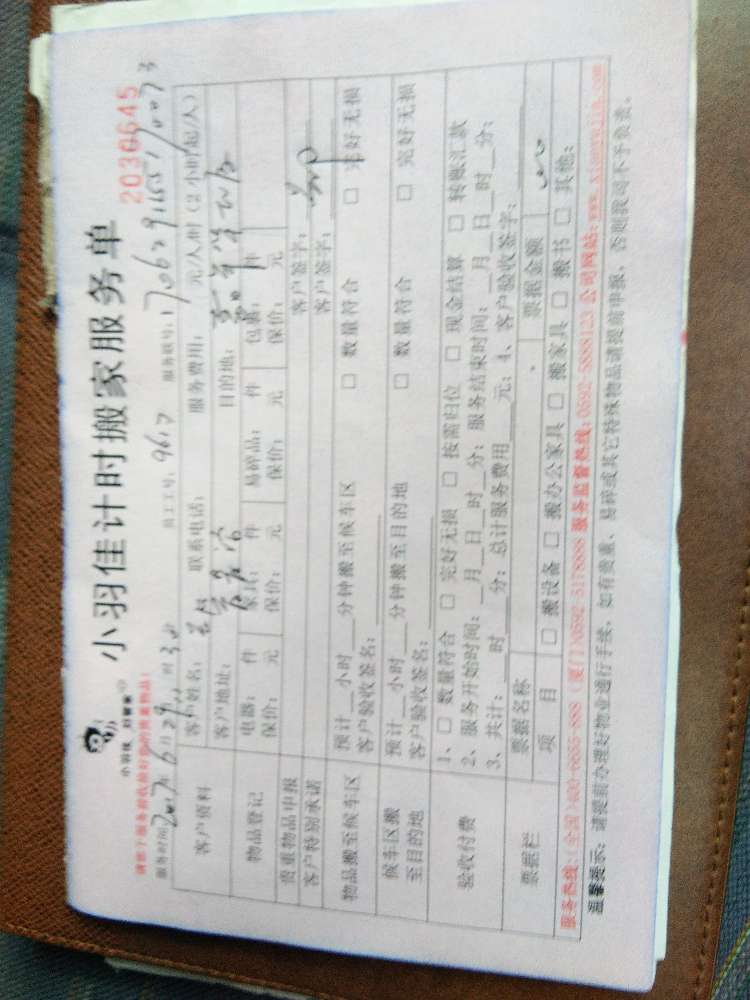 小羽佳计时搬家服务单
小羽佳 到家家
2030645
请您于服务前收捡好您的贵重物品!
服务时间: 2017年6月29日 员工工号: 9617 服务联号: 170629165190073
客户资料
客户姓名: 联系电话: 服务费用: 元/人/时 (2小时起/人)
客户地址: 目的地:
物品登记
电器: 件 家具: 件 易碎品: 件 包裹: 件
保价: 元 保价: 元 保价: 元 保价: 元
贵重物品申报 客户签字:
客户特别承诺 客户签字:
物品搬至候车区
预计__小时__分钟搬至候车区 □ 数量符合 □ 完好无损
客户验收签名:
候车区搬至目的地
预计__小时__分钟搬至目的地 □ 数量符合 □ 完好无损
客户验收签名:
验收付费
1、□ 数量符合 □ 完好无损 □ 按需归位 □ 现金结算 □ 转账汇款
2、服务开始时间:__月__日__时__分; 服务结束时间:__月__日__时__分;
3、共计:__时__分; 总计服务费用__元; 4、客户验收签字:
票据栏
票据名称 票据金额
项 目 □ 搬设备 □ 搬办公家具 □ 搬家具 □ 搬书 □ 其他:
服务热线:(全国)400-6855-888 (厦门)0592-5178888 服务监督热线:0592-5888123 公司网站:www.xiaoyujia.com
温馨提示: 请提前办理好物业通行手续, 如有贵重、易碎或其它特殊物品请提前申报, 否则我司不予负责。